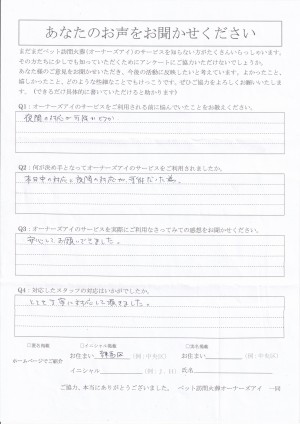 あなたのお声をお聞かせください
まだまだペット訪問火葬(オーナーズアイ)のサービスを知らない方がたくさんいらっしゃいます。
その方たちに少しでも知っていただくためにアンケートにご協力いただけないでしょうか。
あなた様のご意見をお聞かせいただき、今後の活動に反映したいと考えています。よかったこと、
嬉しかったこと、どのような些細なことでもけっこうです。ぜひご協力をよろしくお願いいたします。(できるだけ具体的に書いていただけると助かります)
Q1:オーナーズアイのサービスをご利用される前に悩んでいたことをお教えください。
夜間の対応が可能かどうか
Q2:何が決め手となってオーナーズアイのサービスをご利用されましたか。
本日中の対応と夜間の対応が可能だった為。
Q3:オーナーズアイのサービスを実際にご利用なさってみての感想をお聞かせください。
安心してお願いできました。
Q4:対応したスタッフの対応はいかがでしたか。
とても丁寧に対応して頂きました。
○匿名掲載 ○イニシャル掲載 ○実名掲載
ホームページでご紹介
お住まい (例:中央区) お住まい (例:中央区)
イニシャル (例:S.H) 氏名
ご協力、本当にありがとうございました。 ペット訪問火葬オーナーズアイ 一同